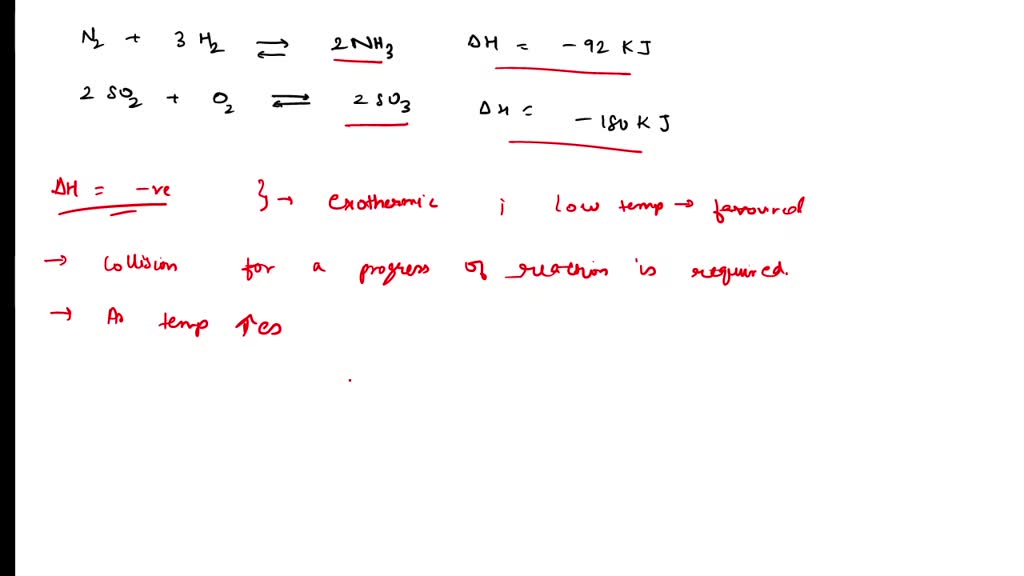 N₂ + 3 H₂ ⇌ 2NH₃ ΔH = -92 KJ
2 SO₂ + O₂ ⇌ 2 SO₃ ΔH = -180 KJ
ΔH = -ve } → Exothermic ; low temp → favoured
→ Collision for a progress of reaction is required.
→ As temp ↑es